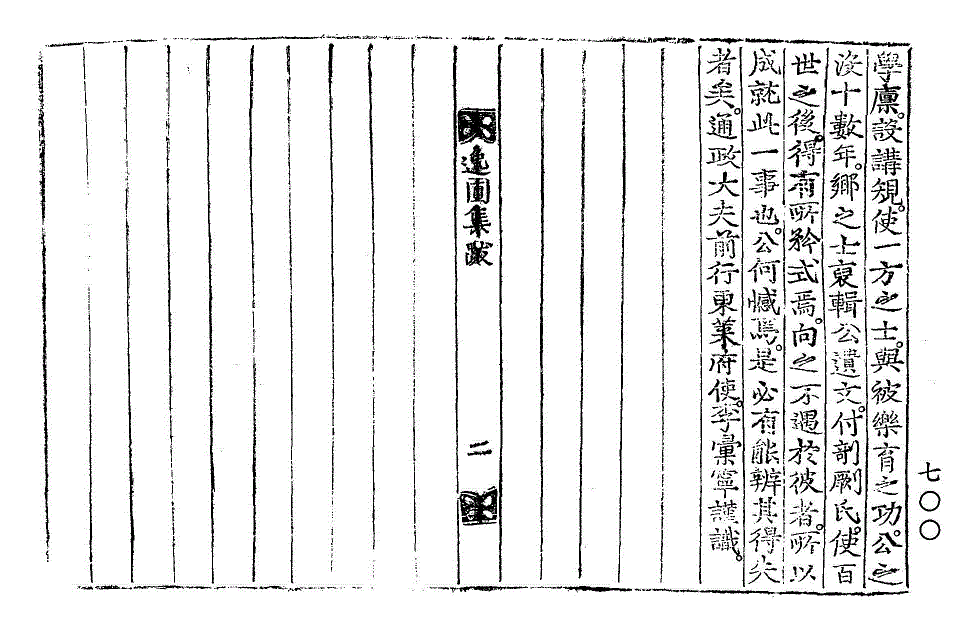 學廩。設講規。使一方之士。與被樂育之功。公之
沒十數年。鄕之士裒輯公遺文。付剞劂氏。使百
世之後。得有所矜式焉。向之不遇於彼者。所以
成就此一事也。公何憾焉。是必有能辨其得失
者矣。通政大夫前行東萊府使李彙寧謹識。
逸圃集跋
二
七〇〇